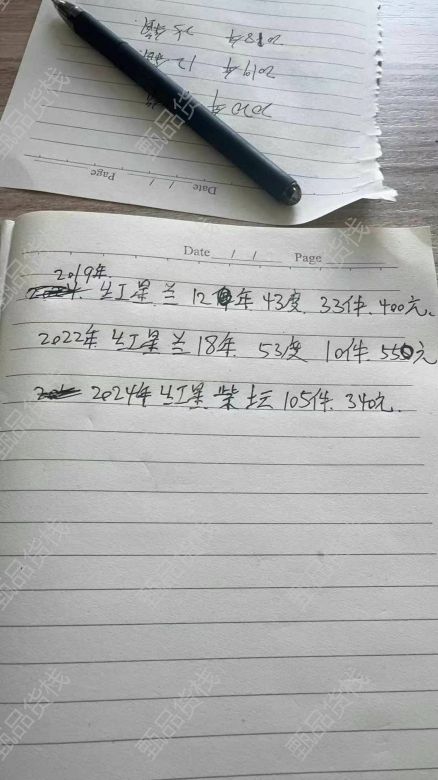 2018年
2019年 12
2020年
Date / / Page
Date / / Page
2019年
红星 兰 12年 43度. 33件. 400元.
2022年 红星 兰 18年 53度 10件. 550元
2024年 红星 柴坛 105件. 340元.
甄品货栈